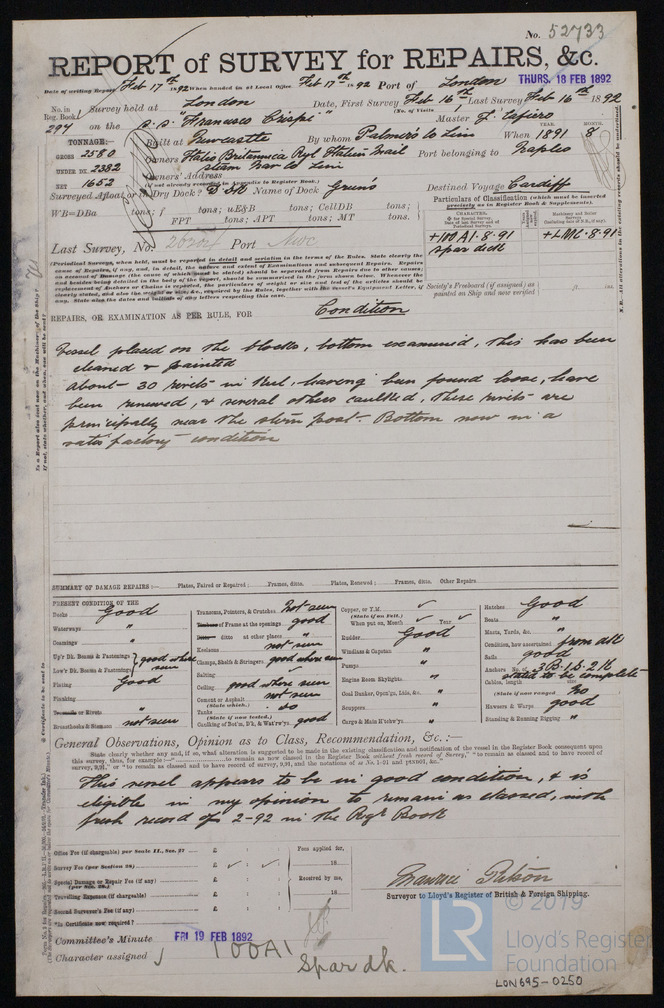 No. 52733
REPORT of SURVEY for REPAIRS, &c.
THURS. 18 FEB 1892
Date of writing Report Feb 17th 1892 When handed in at Local Office Feb 17th 1892 Port of London
No. in Reg. Book Survey held at London Date, First Survey Feb 16th Last Survey Feb 16th 1892
(No. of Visits 1)
294 on the S.S. "Francesco Crispi" Master F. Cafiero
TONNAGE: Built at Newcastle By whom Palmers Co Lim When 1891 MONTH 8
GROSS 2580 Owners Italo Britannica Ryl Italian Mail Steam Nav Co Lim Port belonging to Naples
UNDER DK. 2382 Owners' Address
NET 1652 (if not already recorded in Appendix to Register Book.)
Surveyed Afloat or in Dry Dock? D Dk Name of Dock Green's Destined Voyage Cardiff
Particulars of Classification (which must be inserted precisely as in Register Book & Supplements).
WB=DBa tons; f tons; uE&B tons; CellDB tons;
FPT tons; APT tons; MT tons.
+100A1-8-91 +LMC-8-91
spar deck
Last Survey, No. Port Nwc
Society's Freeboard (if assigned) as painted on Ship and now verified
REPAIRS, OR EXAMINATION AS PER RULE, FOR Condition
Vessel placed on the blocks, bottom examined, this has been
cleaned & painted
About 30 rivets in keel, having been found loose, have
been renewed, & several others caulked, these rivets are
principally near the stern post. Bottom now in a
satisfactory condition
SUMMARY OF DAMAGE REPAIRS:— Plates, Faired or Repaired; Frames, ditto. Plates, Renewed; Frames, ditto. Other Repairs
PRESENT CONDITION OF THE
Decks Good
Waterways "
Coamings "
Up'r Dk. Beams & Fastenings } good where seen
Low'r Dk. Beams & Fastenings
Plating Good
Planking
Treenails or Rivets "
Breasthooks & Stemson not seen
Transoms, Pointers, & Crutches Not seen
Timbers of Frame at the openings good
Ditto ditto at other places "
Keelsons not seen
Clamps, Shelfs & Stringers good where seen
Salting
Ceiling good where seen
Cement or Asphalt (State which.) not seen
Tanks (State if now tested.) do
Caulking of Bot'm, D'k, & Wat'rw'ys good
Copper, or Y.M. (State if on Felt.) ✓
When put on, Month ✓ Year ✓
Rudder Good
Windlass & Capstan "
Pumps "
Engine Room Skylights "
Coal Bunker, Open'gs, Lids, &c. "
Scuppers "
Cargo & Main H'tchw'ys "
Hatches Good
Boats "
Masts, Yards, &c. "
Condition, how ascertained from dk
Sails good
Anchors No. of 3B. 1S. 2K
Cables, length stated to be complete
(State if now ranged) No
Hawsers & Warps good
Standing & Running Rigging "
General Observations, Opinion as to Class, Recommendation, &c.:—
This vessel appears to be in good condition, & is
eligible in my opinion to remain as classed, with
fresh record of 2-92 in the Regr Book
Office Fee (if chargeable) per Scale II., Sec. 27 £ : :
Survey Fee (per Section 28) £ ✓ : ✓ :
Special Damage or Repair Fee (if any) (per Sec. 28.) £ : :
Travelling Expenses (if chargeable) £ : :
Second Surveyor's Fee (if any) £ : :
Fees applied for, 18
Received by me, 18
Is Certificate now required?
Surveyor to Lloyd's Register of British & Foreign Shipping.
Committee's Minute FRI 19 FEB 1892
Character assigned 100A1
Spar dk.
© 2019
LR
Lloyd's Register
Foundation
LON695-0250